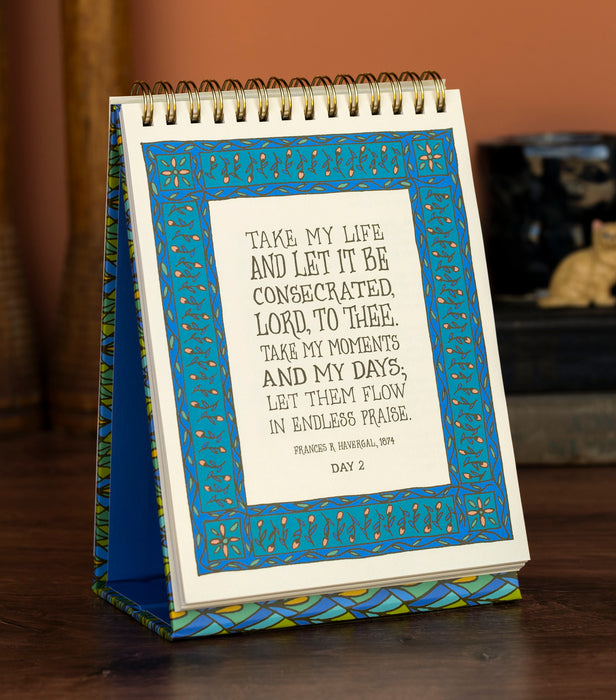 TAKE MY LIFE
AND LET IT BE
CONSECRATED,
LORD, TO THEE.
TAKE MY MOMENTS
AND MY DAYS;
LET THEM FLOW
IN ENDLESS PRAISE.
FRANCES R HAVERGAL, 1874
DAY 2